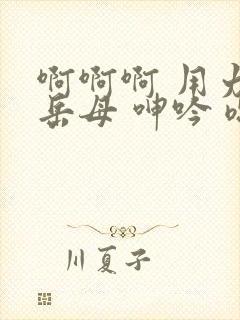 啊啊啊 用
岳母 呻吟
川夏子